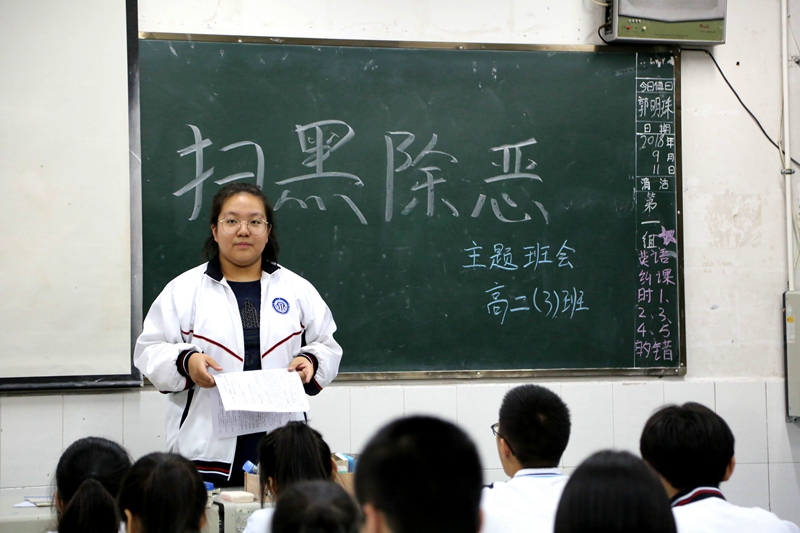 扫黑除恶
主题班会
高二(3)班
今日值日
郭明珠
日期
2018年
9月
11日
清洁
第一组
英语
纠课
时1、
2、3、
4、5
的错